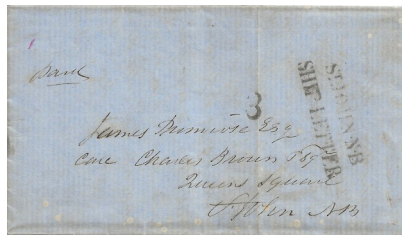 Paid
3
ST. JOHN N.B
SHIP LETTER
James Dunn Esq
care Charles Brown Esq
Queens Square
St John NB